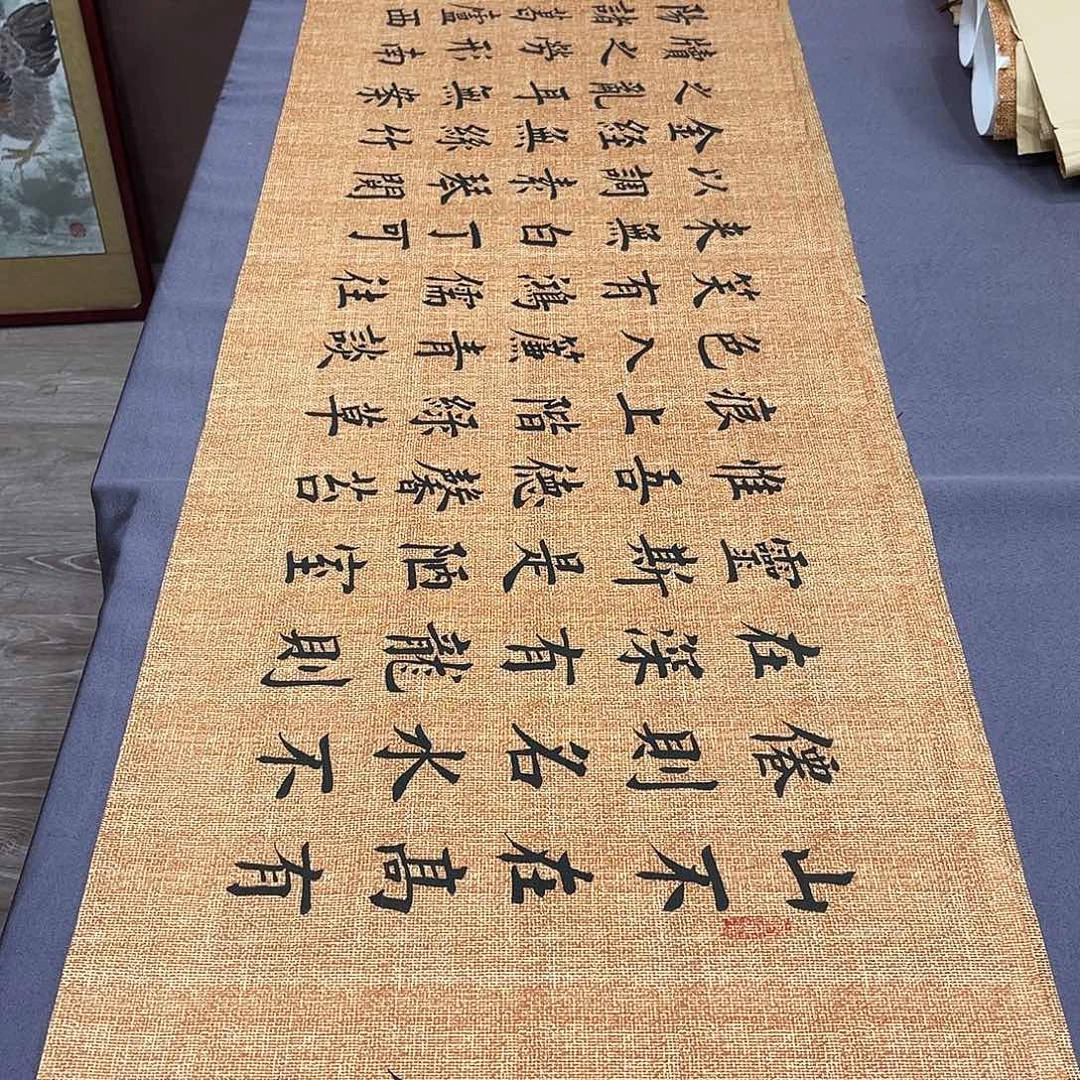 山不在髙有
僊則名水不
在深有龍則
靈斯是陋室
惟吾德馨苔
痕上階綠草
色入簾青談
笑有鴻儒往
来無白丁可
以調素琴閱
金經無絲竹
之亂耳無案
牘之勞形南
陽諸葛廬西